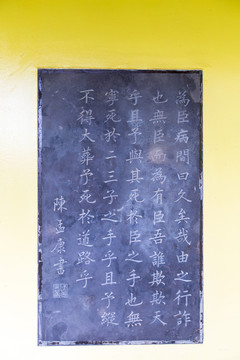 為臣病間曰久矣哉由之行詐
也無臣而為有臣吾誰欺欺天
乎且予與其死於臣之手也無
寧死於二三子之手乎且予縱
不得大葬予死於道路乎
陳孟康書